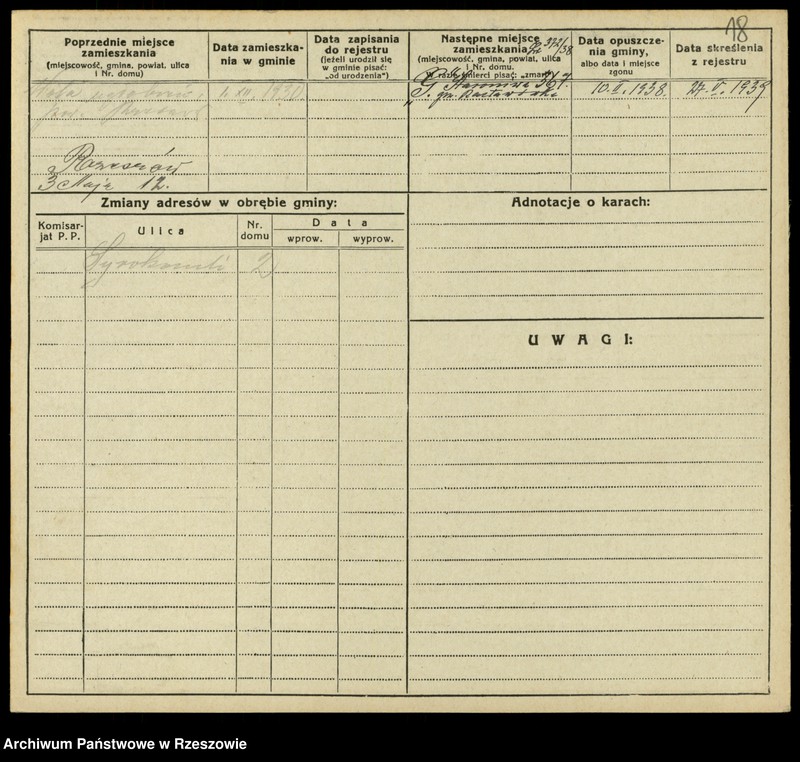 18
Poprzednie miejsce
zamieszkania
(miejscowość, gmina, powiat, ulica
i Nr. domu)
Data zamieszka-
nia w gminie
Data zapisania
do rejestru
(jeżeli urodził się
w gminie pisać:
„od urodzenia")
Następne miejsce
zamieszkania
372/38
(miejscowość, gmina, powiat, ulica
i Nr. domu.
W razie śmierci pisać: „zmarł")
Data opuszcze-
nia gminy,
albo data i miejsce
zgonu
Data skreślenia
z rejestru
1. XII. 1930
10. II. 1938.
24. V. 1939
Rzeszów
3 Maja 12.
Zmiany adresów w obrębie gminy:
Komisar-
jat P. P.
Ulica
Nr.
domu
Data
wprow.
wyprow.
Syrokomli 2
Adnotacje o karach:
UWAGI:
Archiwum Państwowe w Rzeszowie